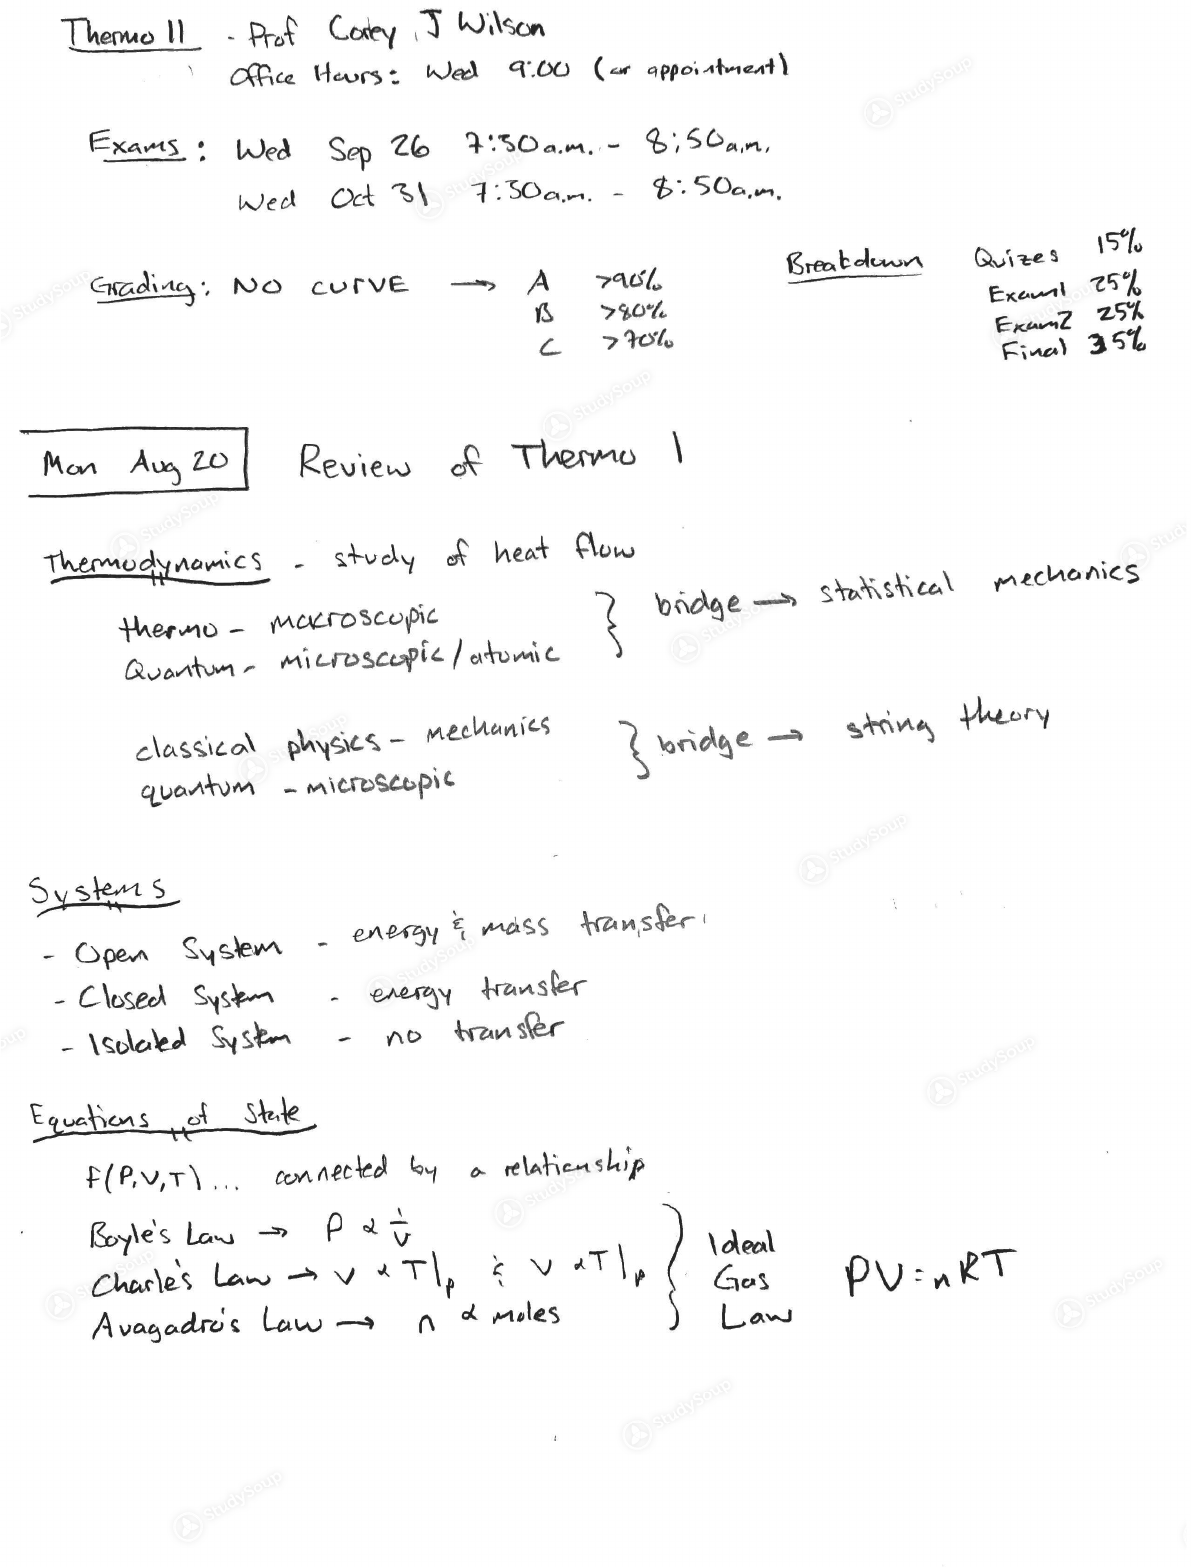 Thermo II - Prof Corey J Wilson
Office Hours: Wed 9:00 (or appointment)
Exams: Wed Sep 26 7:30a.m. - 8:50a.m.
Wed Oct 31 7:30a.m. - 8:50a.m.
Grading: NO CURVE → A >90%
B >80%
C >70%
Breakdown Quizes 15%
Exam1 25%
Exam2 25%
Final 35%
Mon Aug 20 Review of Thermo I
Thermodynamics - study of heat flow
thermo - macroscopic
Quantum - microscopic/atomic
} bridge → statistical mechanics
classical physics - mechanics
quantum - microscopic
} bridge → string theory
Systems
- Open System - energy & mass transfer
- Closed System - energy transfer
- Isolated System - no transfer
Equations of State
f(P,V,T)... connected by a relationship
Boyle's Law → P ∝ 1/V
Charle's Law → V ∝ T|p & V ∝ T|p
Avagadro's Law → n ∝ moles
} Ideal
Gas
Law
PV=nRT
StudySoup